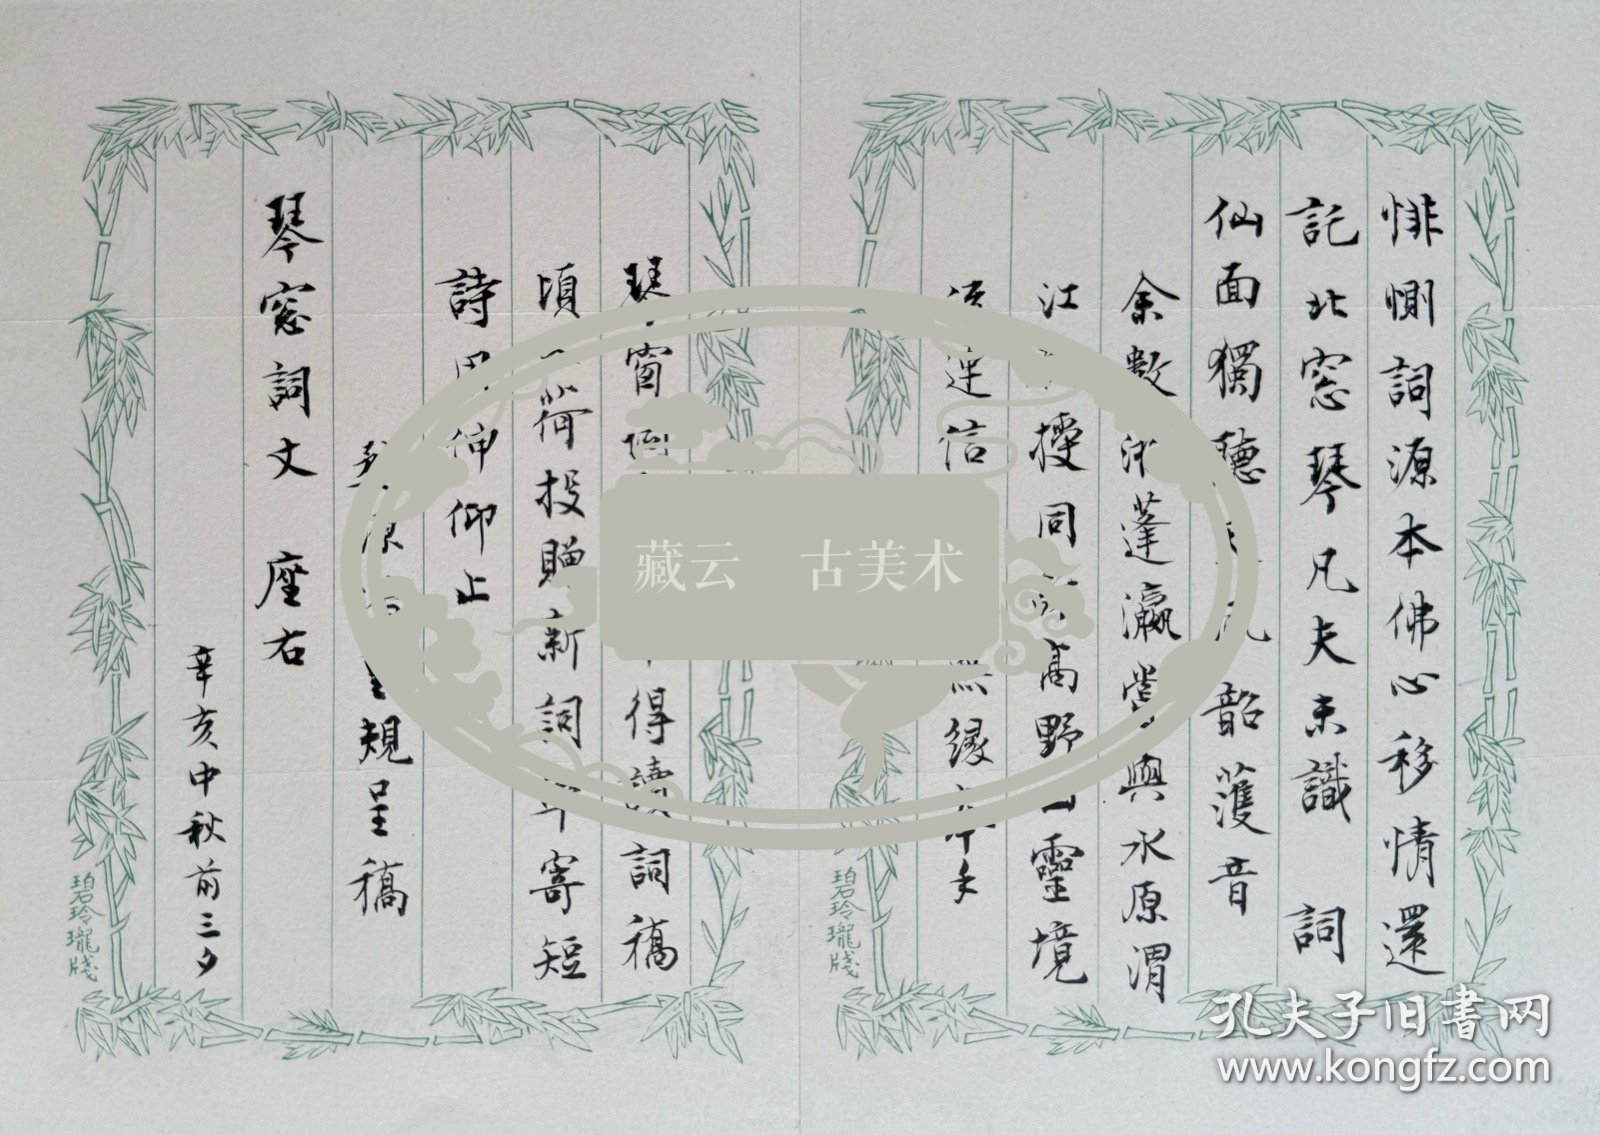 悱惻詞源本佛心移情還
託北窓琴凡夫未識詞
仙面獨聽風韶䕶音
余數渉蓬瀛嘗與水原渭
江授同高野山靈境
連信緣
琴窗得讀詞稿
頃荷投贈新詞寄短
詩用伸仰止
原規呈稿
琴窓詞丈 座右
辛亥中秋前三夕
碧玲瓏牋
碧玲瓏牋
藏云 古美术
孔夫子旧書网
www.kongfz.com